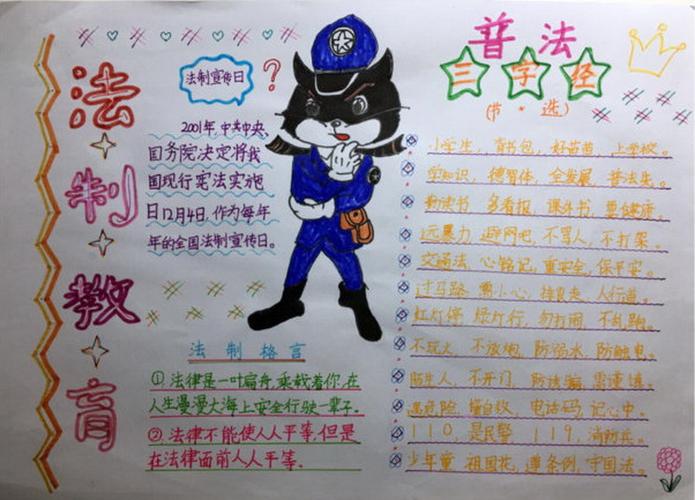 法制教育
法制宣传日
?
2001年,中共中央、
国务院决定将我
国现行宪法实施
日12月4日,作为每年
年的全国法制宣传日。
法制格言
①法律是一叶扁舟,乘载着你,在
人生漫漫大海上安全行驶一辈子。
②法律不能使人人平等,但是
在法律面前人人平等。
普法
三字经
(节·选)
小学生,背书包,好苗苗,上学校。
学知识,德智体,全发展,普法先。
勤读书,多看报,课外书,要健康。
远暴力,避网吧,不骂人,不打架。
交通法,心铭记,重安全,保平安。
过马路,需小心,排良走,人行道。
红灯停,绿灯行,勿打闹,不乱跑。
不玩火,不放炮,防溺水,防触电。
防生人,不开门,防诱骗,需谨慎。
遇危险,懂自救,电话码,记心中。
110,是民警,119,消防兵。
少年童,祖国花,遵条例,守国法。